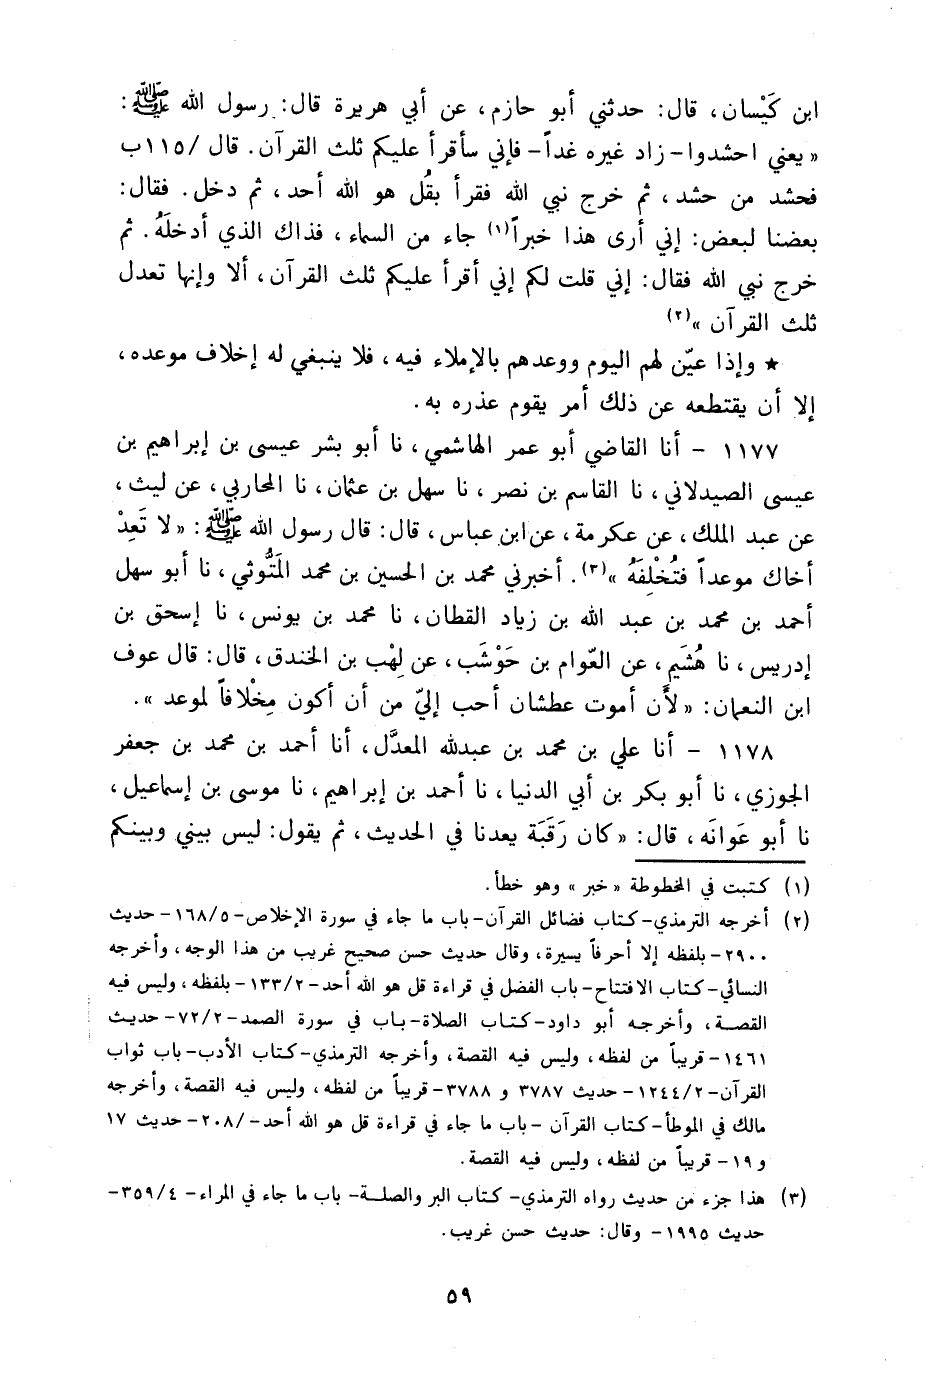 ابن كَيْسان، قال: حدثني أبو حازم، عن أبي هريرة قال: رسول الله ﷺ:
« يعني احشدوا - زاد غيره غداً - فإني سأقرأ عليكم ثلث القرآن. قال /١١٥ب
فحشد من حشد، ثم خرج نبي الله فقرأ بقُل هو الله أحد، ثم دخل. فقال:
بعضنا لبعض: إني أرى هذا خبراً(١) جاء من السماء، فذاك الذي أدخلَهُ. ثم
خرج نبي الله فقال: إني قلت لكم إني أقرأ عليكم ثلث القرآن، ألا وإنها تعدل
ثلث القرآن »(٢)
★ وإذا عيّن لهم اليوم ووعدهم بالإملاء فيه، فلا ينبغي له إخلاف موعده،
إلا أن يقتطعه عن ذلك أمر يقوم عذره به.
١١٧٧ - أنا القاضي أبو عمر الهاشمي، نا أبو بشر عيسى بن إبراهيم بن
عيسى الصيدلاني، نا القاسم بن نصر، نا سهل بن عثمان، نا المحاربي، عن ليث،
عن عبد الملك، عن عكرمة، عن ابن عباس، قال: قال رسول الله ﷺ: « لا تَعِدْ
أخاك موعداً فتُخْلِفَهُ »(٣). أخبرني محمد بن الحسين بن محمد المَتُّوثي، نا أبو سهل
أحمد بن محمد بن عبد الله بن زياد القطان، نا محمد بن يونس، نا إسحق بن
إدريس، نا هُشَيم، عن العّوام بن حَوْشَب، عن لِهْب بن الخندق، قال: قال عوف
ابن النعمان: « لأَن أموت عطشان أحب إليّ من أن أكون مِخْلافاً لموعد ».
١١٧٨ - أنا علي بن محمد بن عبدلله المعدَّل، أنا أحمد بن محمد بن جعفر
الجوزي، نا أبو بكر بن أبي الدنيا، نا أحمد بن إبراهيم، نا موسى بن إسماعيل،
نا أبو عَوانَه، قال: « كان رَقَبَة يعدنا في الحديث، ثم يقول: ليس بيني وبينكم
(١) كتبت في المخطوطة « خبر » وهو خطأ.
(٢) أخرجه الترمذي - كتاب فضائل القرآن - باب ما جاء في سورة الإخلاص - ١٦٨/٥ - حديث
٢٩٠٠ - بلفظه إلا أحرفاً يسيرة، وقال حديث حسن صحيح غريب من هذا الوجه، وأخرجه
النسائي - كتاب الافتتاح - باب الفضل في قراءة قل هو الله أحد - ١٣٣/٢ - بلفظه، وليس فيه
القصة، وأخرجه أبو داود - كتاب الصلاة - باب في سورة الصمد - ٧٢/٢ - حديث
١٤٦١ - قريباً من لفظه، وليس فيه القصة، وأخرجه الترمذي - كتاب الأدب - باب ثواب
القرآن - ١٢٤٤/٢ - حديث ٣٧٨٧ و ٣٧٨٨ - قريباً من لفظه، وليس فيه القصة، وأخرجه
مالك في الموطأ - كتاب القرآن - باب ما جاء في قراءة قل هو الله أحد - /٢٠٨ - حديث ١٧
و ١٩ - قريباً من لفظه، وليس فيه القصة.
(٣) هذا جزء من حديث رواه الترمذي - كتاب البر والصلة - باب ما جاء في المراء - ٣٥٩/٤ -
حديث ١٩٩٥ - وقال: حديث حسن غريب.
٥٩